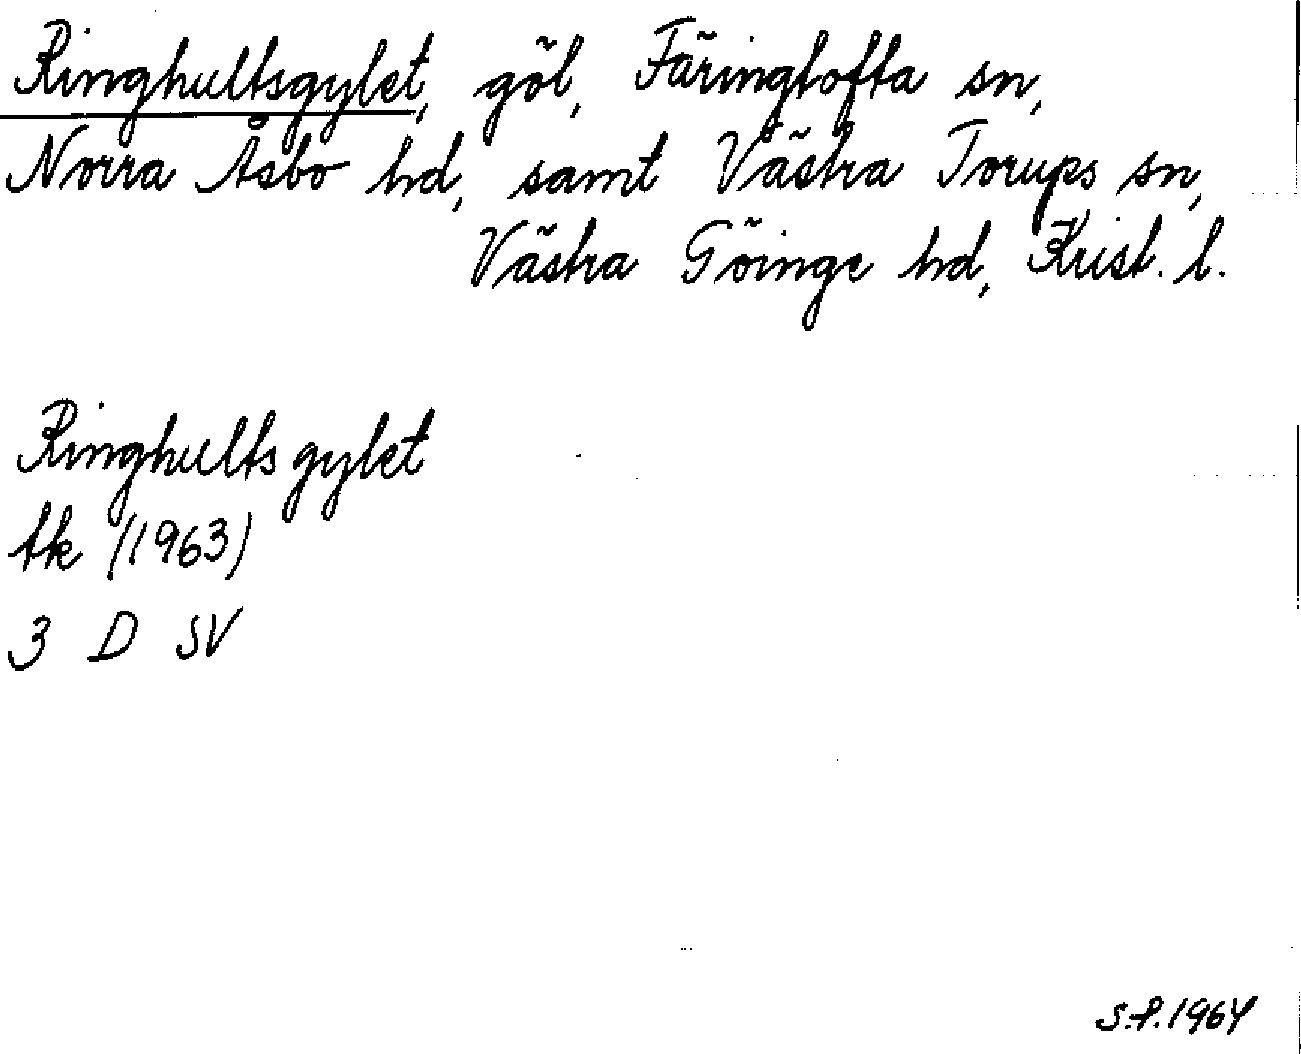 Ringhultsgylet, göl, Färingtofta sn,
Norra Åsbo hd, samt Västra Torups sn,
Västra Göinge hd, Krist. l.
Ringhultsgylet
tk (1963)
3 D SV
S.P. 1964